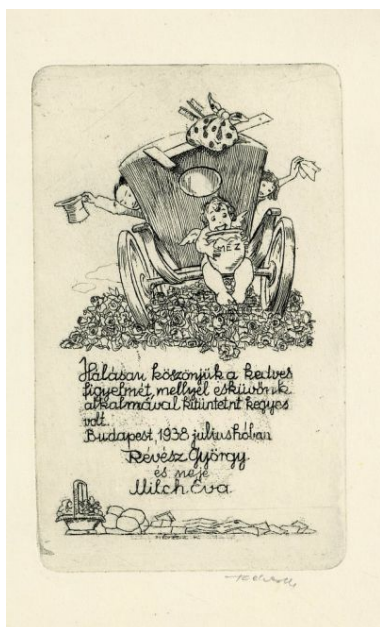 MÉZ
Hálásan köszönjük a kedves
figyelmét, mellyel esküvőnk
alkalmával kitüntetni kegyes
volt.
Budapest, 1938 július hóban
Révész György
és neje
Milch Éva